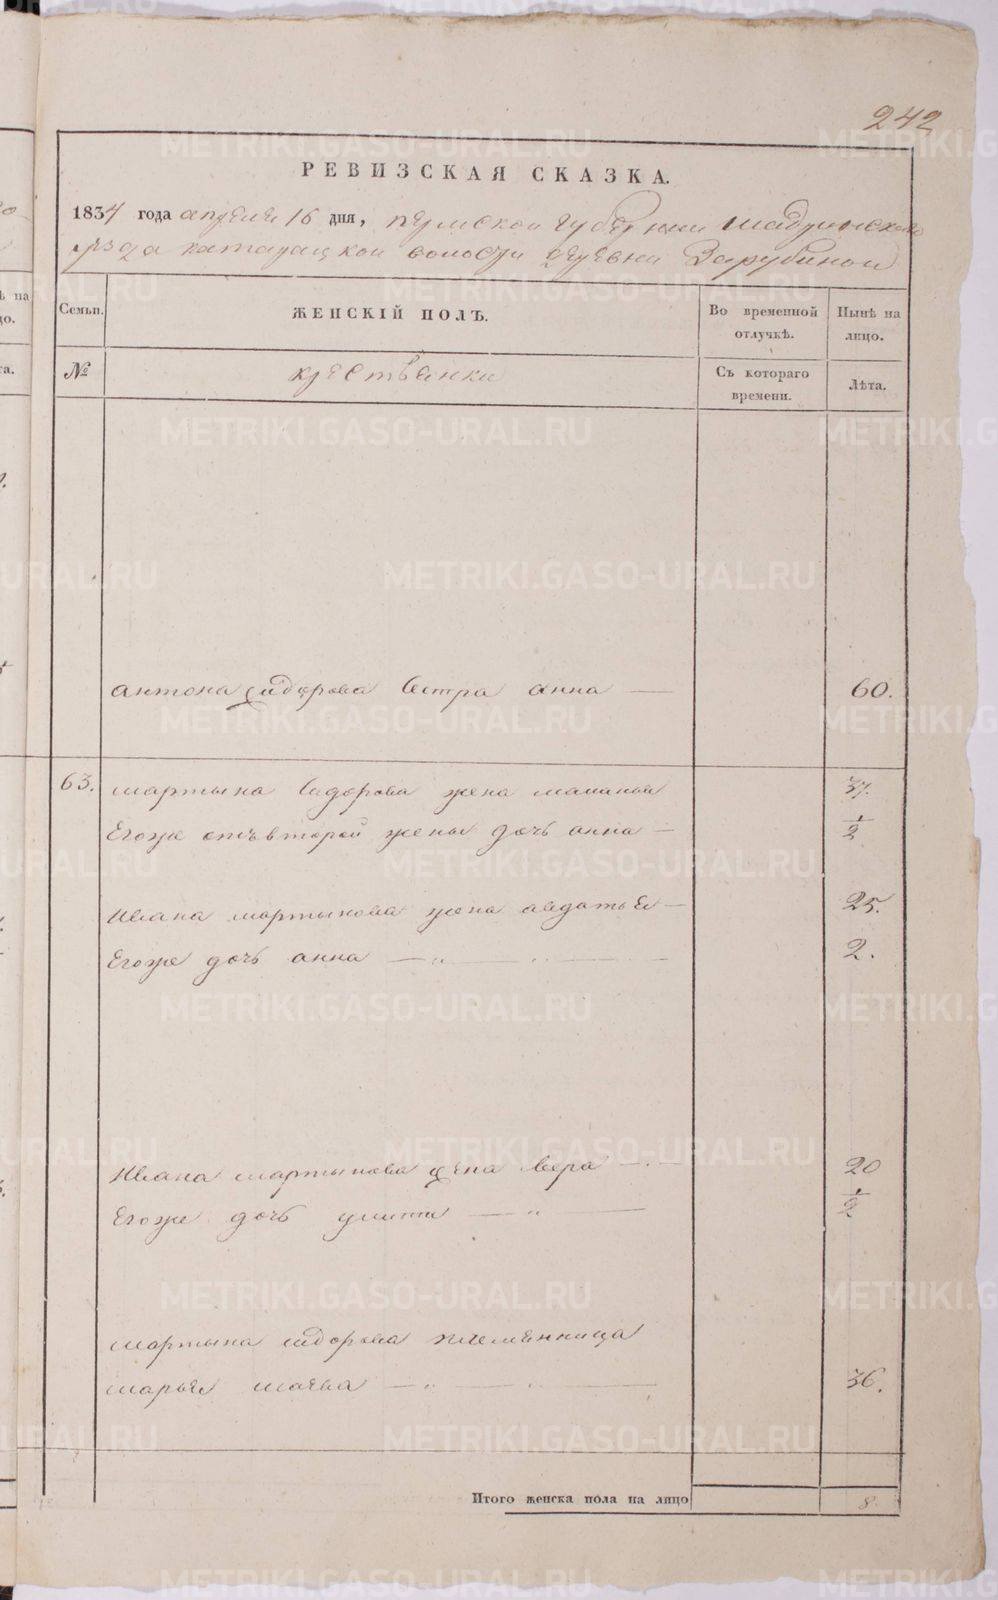 242
РЕВИЗСКАЯ СКАЗКА.
1834 года апреля 16 дня, пермской губернии шадринскаго
уезда катайцкой волости деревни Зарубиной
Семьи. ЖЕНСКІЙ ПОЛЪ. Во временной отлучкѣ. Нынѣ на лицо.
№ крестьянки Съ котораго времени. Лѣта.
антона сидорова сестра анна — 60.
63. мартына сидорова жена маланья 37.
Егоже отъ второй жены дочь анна — 1/2
Ивана мартынова жена авдотья — 25.
Егоже дочь анна — „ — „ — 2.
Ивана мартынова жена вера — 20
Егоже дочь улита — „ — 1/2
мартына сидорова племянница
марья — „ — „ — 36.
Итого женска пола на лицо 8.
METRIKI.GASO-URAL.RU